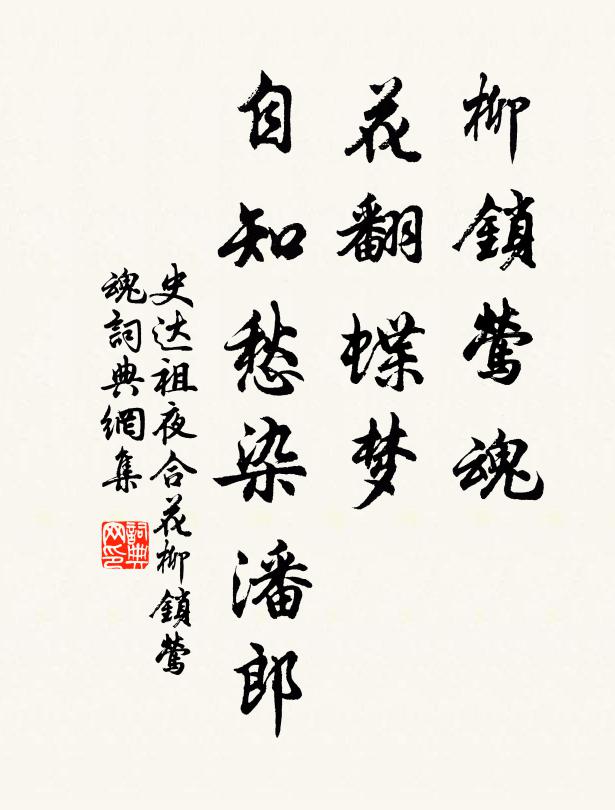 柳鎖莺魂
花翻蝶梦
自知愁染潘郎
史达祖夜合花柳鎖莺
魂詞典網集
詞典网印